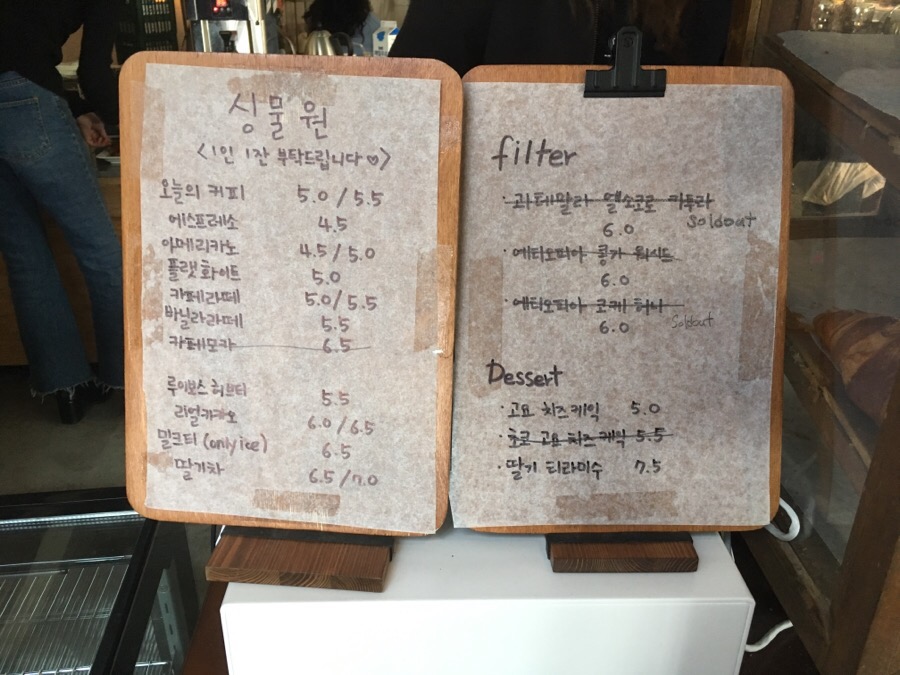 싱물원
<1인 1잔 부탁드립니다♡>
오늘의 커피 5.0/5.5
에스프레소 4.5
아메리카노 4.5/5.0
플랫화이트 5.0
카페라떼 5.0/5.5
바닐라라떼 5.5
카페모카 6.5
루이보스 허브티 5.5
리얼카카오 6.0/6.5
밀크티 (only ice) 6.5
딸기차 6.5/7.0
filter
· 과테말라 엘소코로 마투라
6.0 Soldout
· 에티오피아 콩가 워시드
6.0
· 에티오피아 코케 허니
6.0 Soldout
Dessert
· 고요 치즈케익 5.0
· 초코 고요 치즈케익 5.5
· 딸기 티라미수 7.5